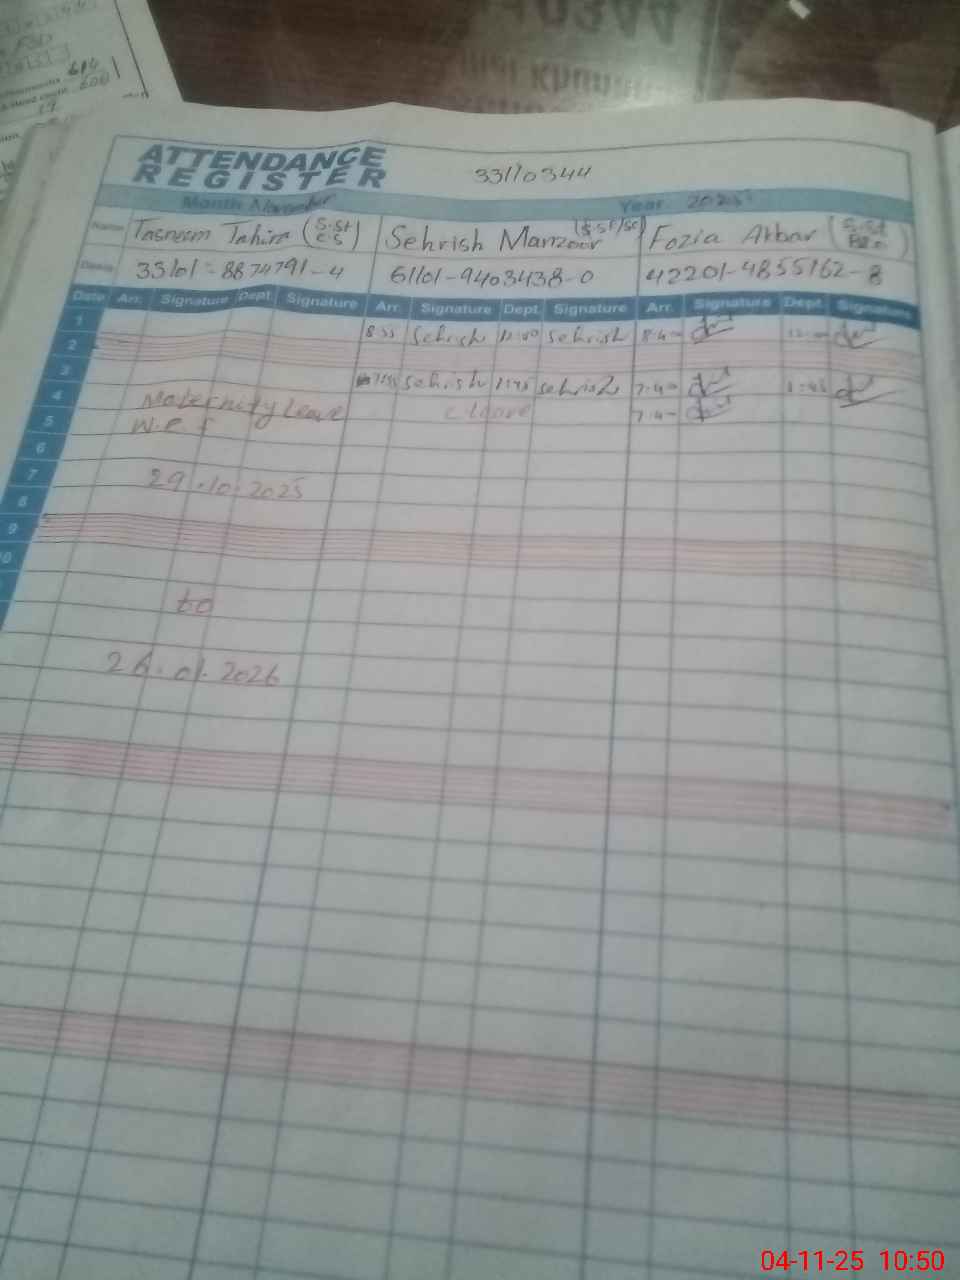 614
600
ATTENDANCE
REGISTER
33110344
Month November Year 2025
Name Tasneem Tahira (S.St C.S) Sehrish Manzoor (S.St/Sc) Fozia Akbar (S.St
33101-8874791-4 61101-9403438-0 42201-4855162-8
Date Arr. Signature Dept. Signature Arr. Signature Dept. Signature Arr. Signature Dept. Signature
1 8:35 Sehrish Sehrish 8:40
2
3 Sehrish 1:45 Sehrish 7:40 1:45
4 Maternity Leave C leave 7:40
5 W.e.f
6
7 29.10.2025
8
9
10
to
26.01.2026
04-11-25 10:50